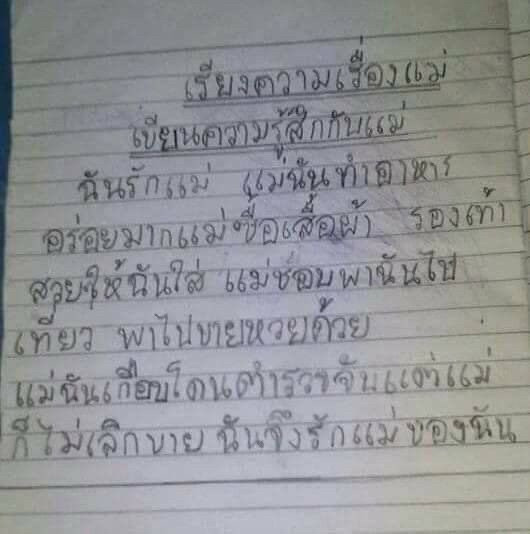 เรียงความเรื่องแม่
เขียนความรู้สึกกับแม่
ฉันรักแม่ แม่ฉันทำอาหาร
อร่อยมากแม่ซื้อเสื้อผ้า รองเท้า
สวยให้ฉันใส่ แม่ชอบพาฉันไป
เที่ยว พาไปขายหวยด้วย
แม่ฉันเกือบโดนตำรวจจับแต่แม่
ก็ไม่เลิกขาย ฉันจึงรักแม่ของฉัน